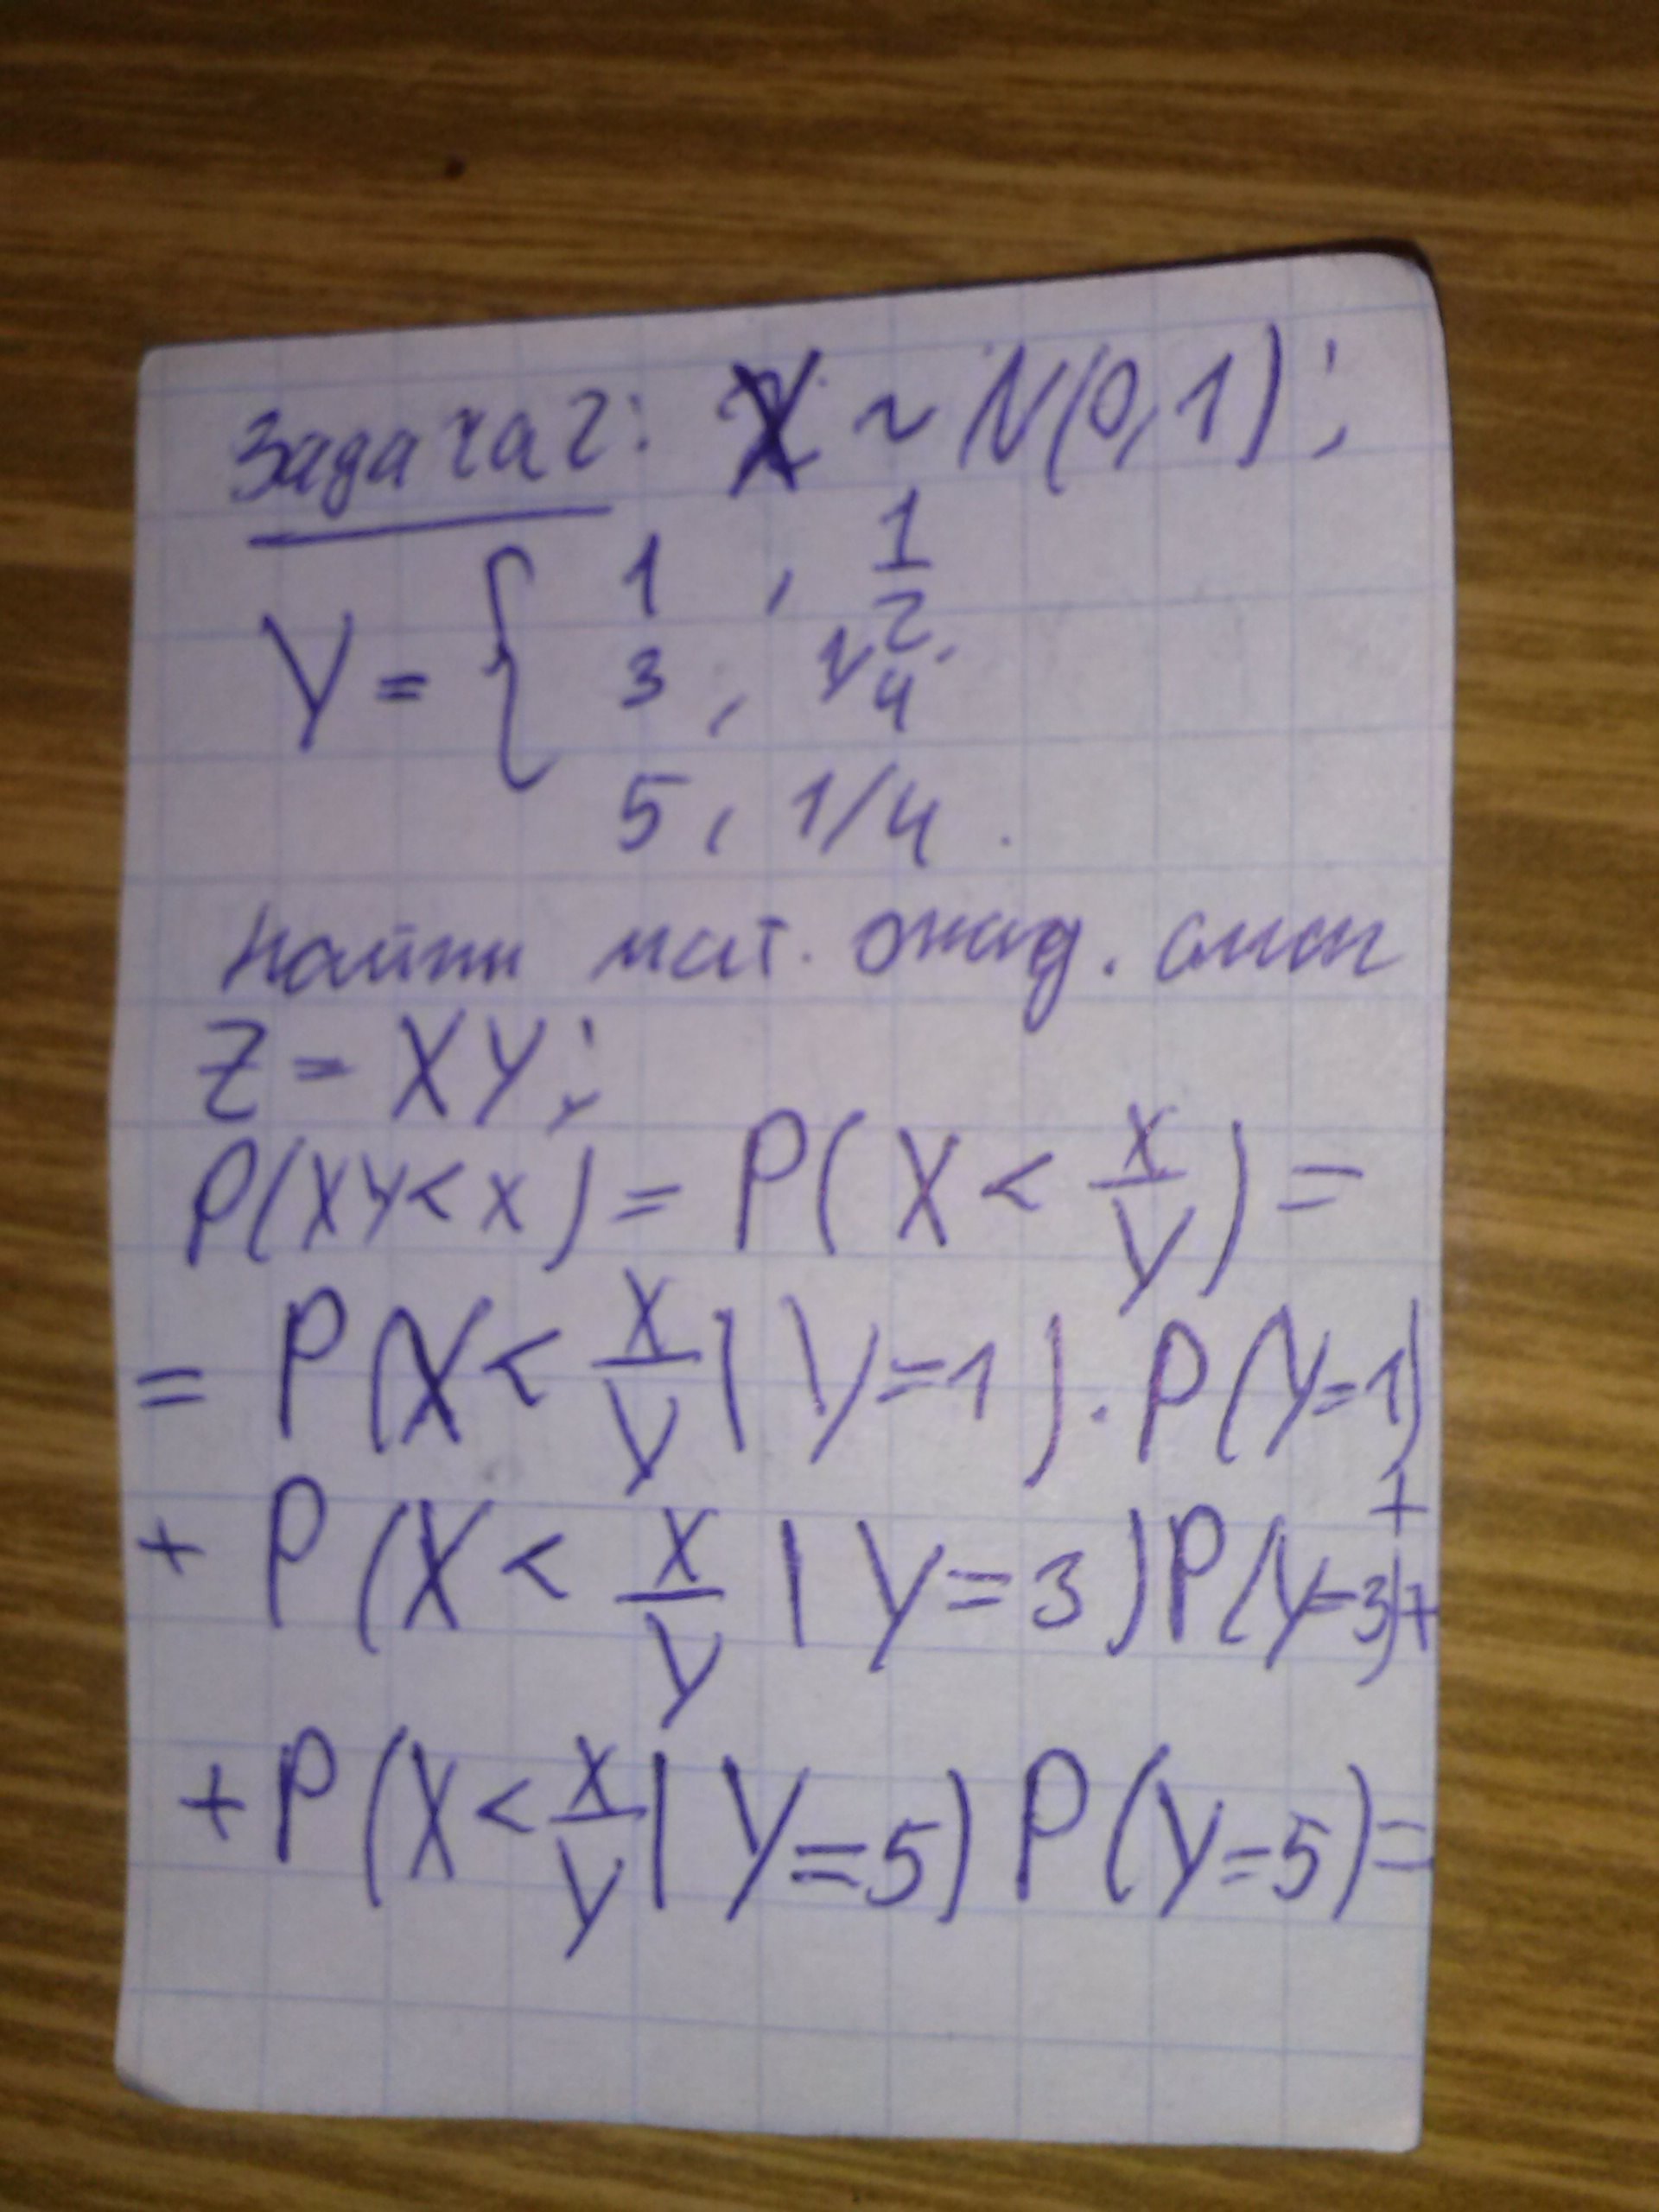 Задача 2: X ~ N(0,1);
Y = { 1 , 1/2
3 , 1/4
5 , 1/4 .
Найти мат. ожид.
Z = XY;
P(XY < x) = P(X < x/Y) =
= P(X < x/Y | Y=1) · P(Y=1) +
+ P(X < x/Y | Y=3) P(Y=3) +
+ P(X < x/Y | Y=5) P(Y=5) =